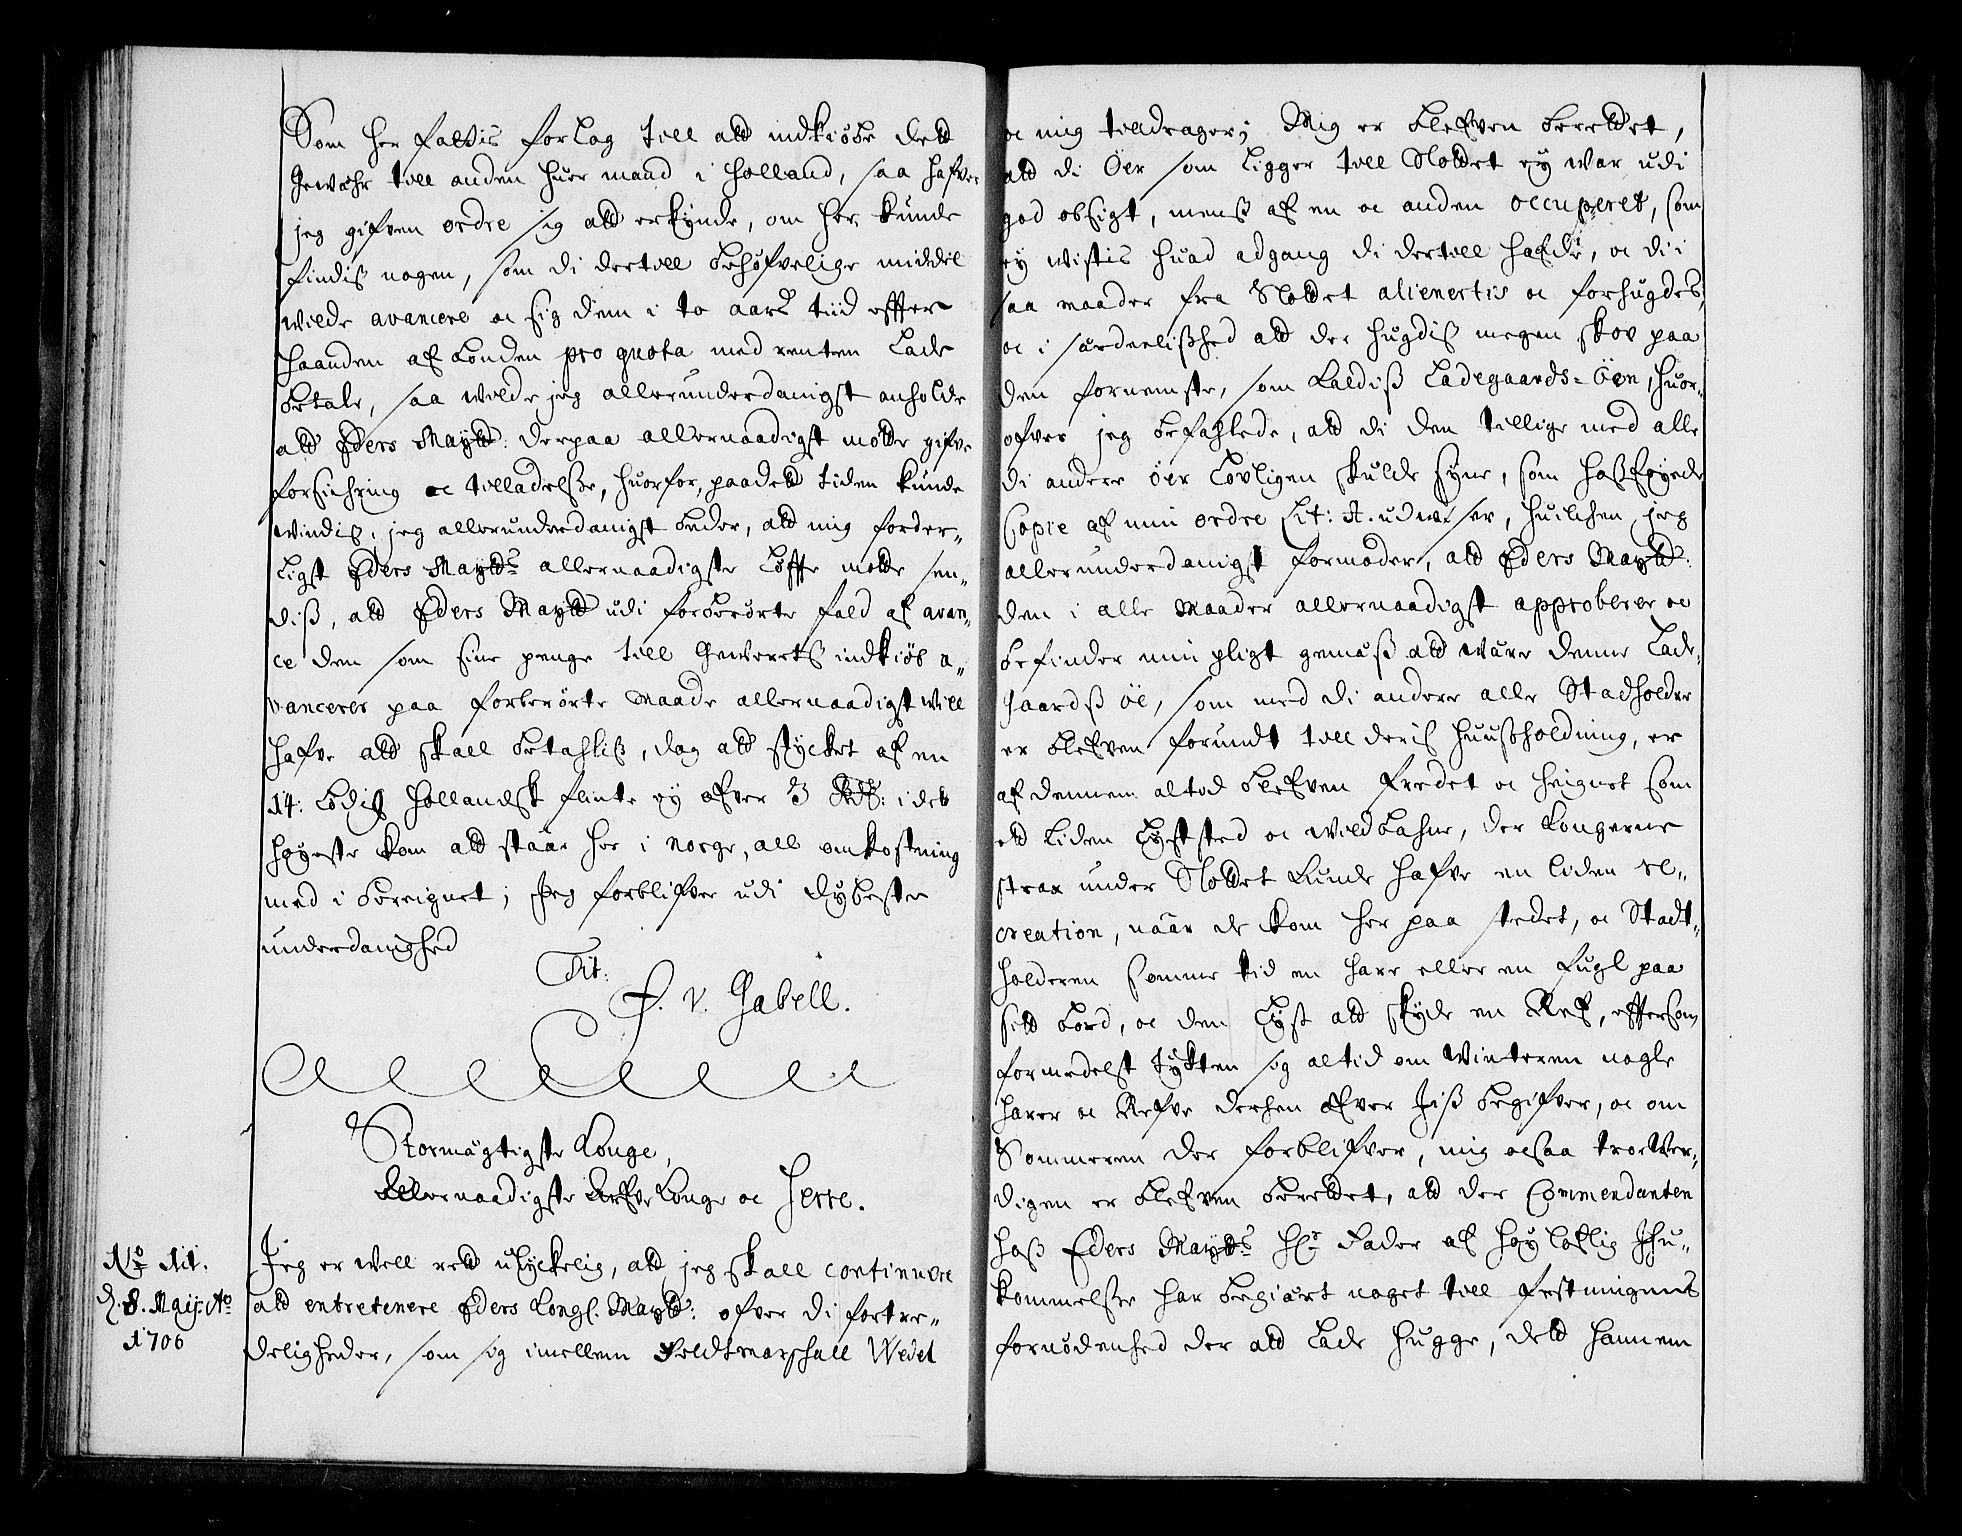 Som her fattis forlag till att indkiøbe dett
gewehr till anden huer mand i Holland, saa hafver
jeg gifven ordre sig att erkynde, om her kunde
findis nogen, som di dertill behøfvelige middel
wilde avancere oc sig dem i to aars tiid effter
haanden af bonden pro quota med renten lade
betale, saa wilde jeg allerunderdanigst anholde
att Eders Maytt: derpaa allernaadigst motte gifve
forsichring oc tilladelse, huorfor, paadett tiden kunde
vindis, jeg allerunderdanigst beder, att mig forder-
ligst Eders Maytts allernaadigste løffte motte sen-
dis, att Eders Maytt udi forberørte fald af avan-
ce den som sine penge till Gewerets indkiøb a-
vancerer paa forberørte maade allernaadigst will
hafve att skall betahlis, dog att stycket af en
14: lødig Hollandsk flinte ey ofver 3 Rdr: i det
høyeste kom att staae her i Norge, all omkostning
med i bereignet; Jeg forblifver udi dybeste
underdanighed
Tit:
F. V. Gabell.
Stormægtigste Konge,
Allernaadigste ArfveKonge oc Herre.
No 111.
d. 8. Maij Ao
1706
Jeg er well rett ulyckelig, att jeg skall continuere
att entretenere Eders Kongl. Maytt: ofver di fortre-
deligheder, som sig imellem Feldtmarschall Wedel
oc mig tilldrager; Mig er blefven berettet,
att di Öer som ligger till Slottet ey war udi
god obsigt, mens af en oc anden occuperet, som
ey wistis huad adgang di dertill hafde, oc di i
saa maader fra Slottet alienertis oc forhugdes,
oc i særdeelished att der hugdis megen skov paa
den fornemste, som kaldis Ladegaards-Öen, huor-
ofver jeg befahlede, att di den tillige med alle
di andere öer lovligen skulde syne, som hosföyede
Copie af min ordre Lit: A. udviser, huilchen jeg
allerunderdanigst formoder, att Eders Maytt:
den i alle maader allernaadigst approberer oc
befinder min pligt gemæs att være denne Lade-
gaards öe, som med di andere alle Stadholdre
er blefven forundt till deris huusholdning, er
af dennem altid blefven fredet oc heignet som
ett liden lyststed oc wildbahne, der Kongerne
strax under Slottet kunde hafve en liden re-
creation, naar de kom her paa stedet, oc Stadt-
holderen somme tid en hare eller en fugl paa
sitt bord, oc den lyst att skyde en Ref, effersom
formedelst tykten sig altid om Winteren nogle
harer oc Refve derhen ofver Jis begifver, oc om
Sommeren der forblifver, mig ocsaa troewer-
digen er blefven berettet, att der Commendanten
hos Eders Maytts Hr Fader af høyloflig Ihu-
kommelse har begiært noget till festningens
fornødenhed der att lade hugge, dett hannem